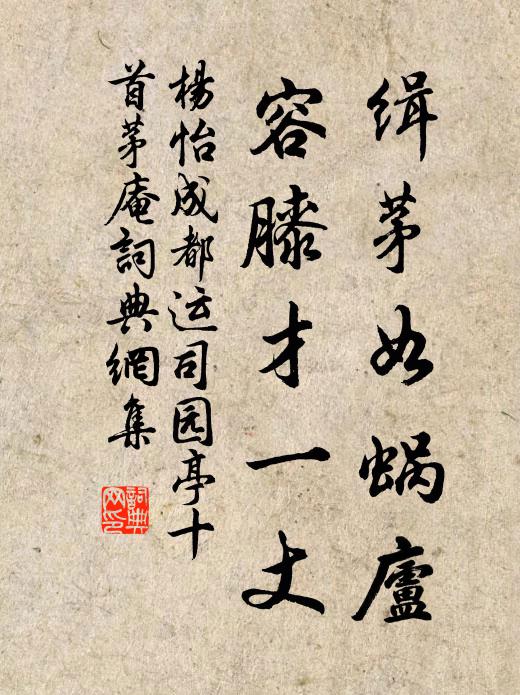 缉茅如蜗廬
容膝才一丈
楊怡成都运司园亭十
首茅庵詞典網集
詞典
网印